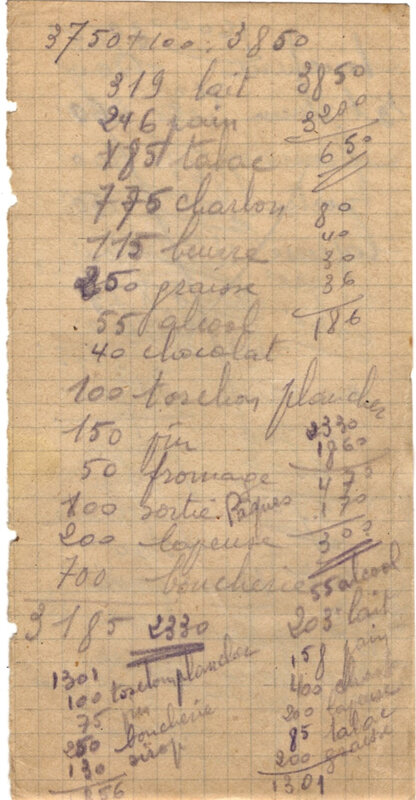 3750+100: 3850
319 lait 3850
246 pain 3200
185 tabac 650
775 charbon 80
115 beurre 40
250 graisse 30
55 alcool 36
40 chocolat 186
100 torchon plancher
150 2330
50 fromage 1860
100 sortie Pâques 470
200 170
700 boucherie 300
3185 2330
55 alcool
203 lait
158 pain
400
200
85 tabac
200 graisse
1301
1301
100
75
250 boucherie
130 sirop
856